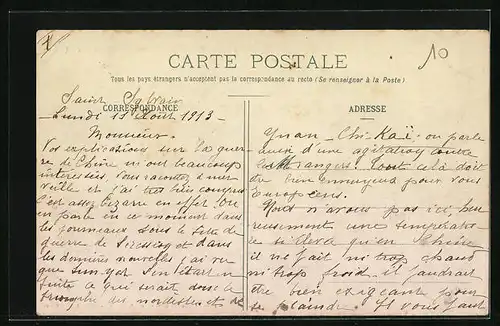 10
CARTE POSTALE
Tous les pays étrangers n'acceptent pas la correspondance au recto (Se renseigner à la Poste)
CORRESPONDANCE
Saint Sylvain
Lundi 11 Août 1913
Monsieur.
Vos explications sur la guer-
re de Chine m'ont beaucoup
intéressées, vous racontez à mer-
veille et j'ai très bien compris
C'est assez bizarre en effet. On
en parle en ce moment dans
les journeaux sous le titre de
guerre de et dans
les dernières nouvelles j'ai vu
que Sun-yat-Sin était en
fuite ce qui serait donc le
triomphe des nordistes et de
ADRESSE
Yuan-Chi-Kaï; on parle
aussi d'une agitation contre
les étrangers. Tout cela doit
être bien ennuyeux pour vous
Européens.
Nous n'avons pas ici, heu-
reusement une températu-
re si élevé qu'en Chine
il ne fait ni trop chaud
ni trop froid, il faudrait
être bien exigeant pour
se plaindre. Il vous faut